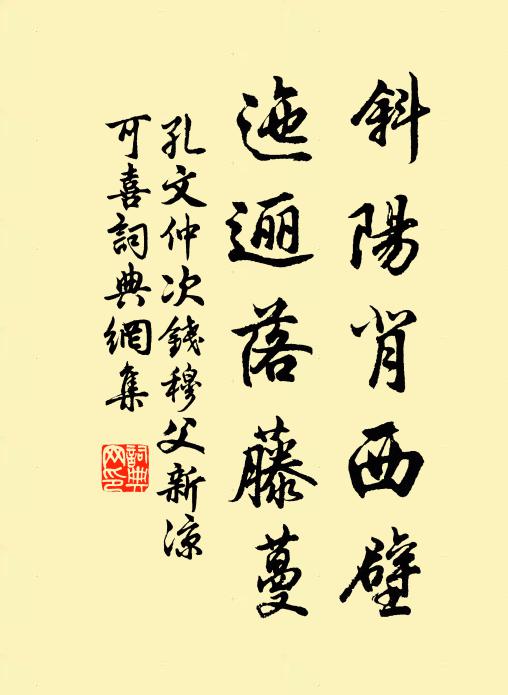 斜陽背西壁
迤邐落藤蔓
孔文仲次錢穆父新涼
可喜詞典網集
詞典網印